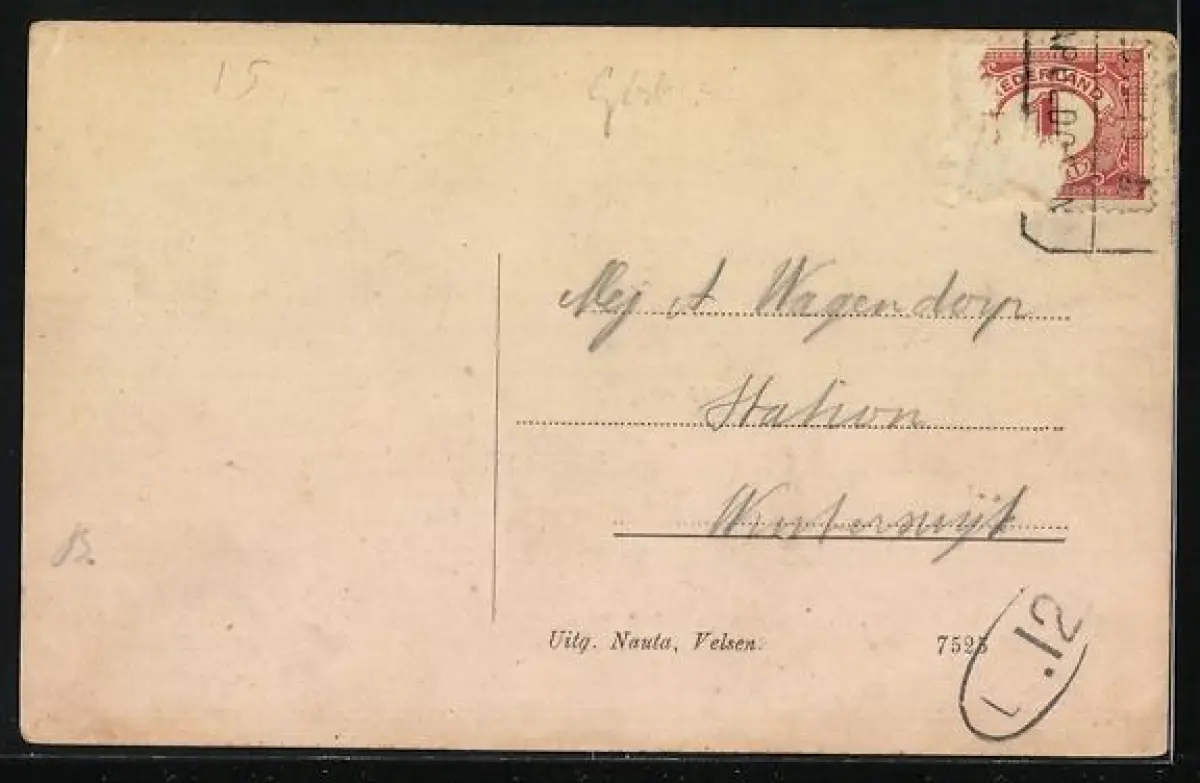 15
NEDERLAND
1
Mej A Wagendorp
Station
Uitg. Nauta, Velsen.
7525
L.12
B.